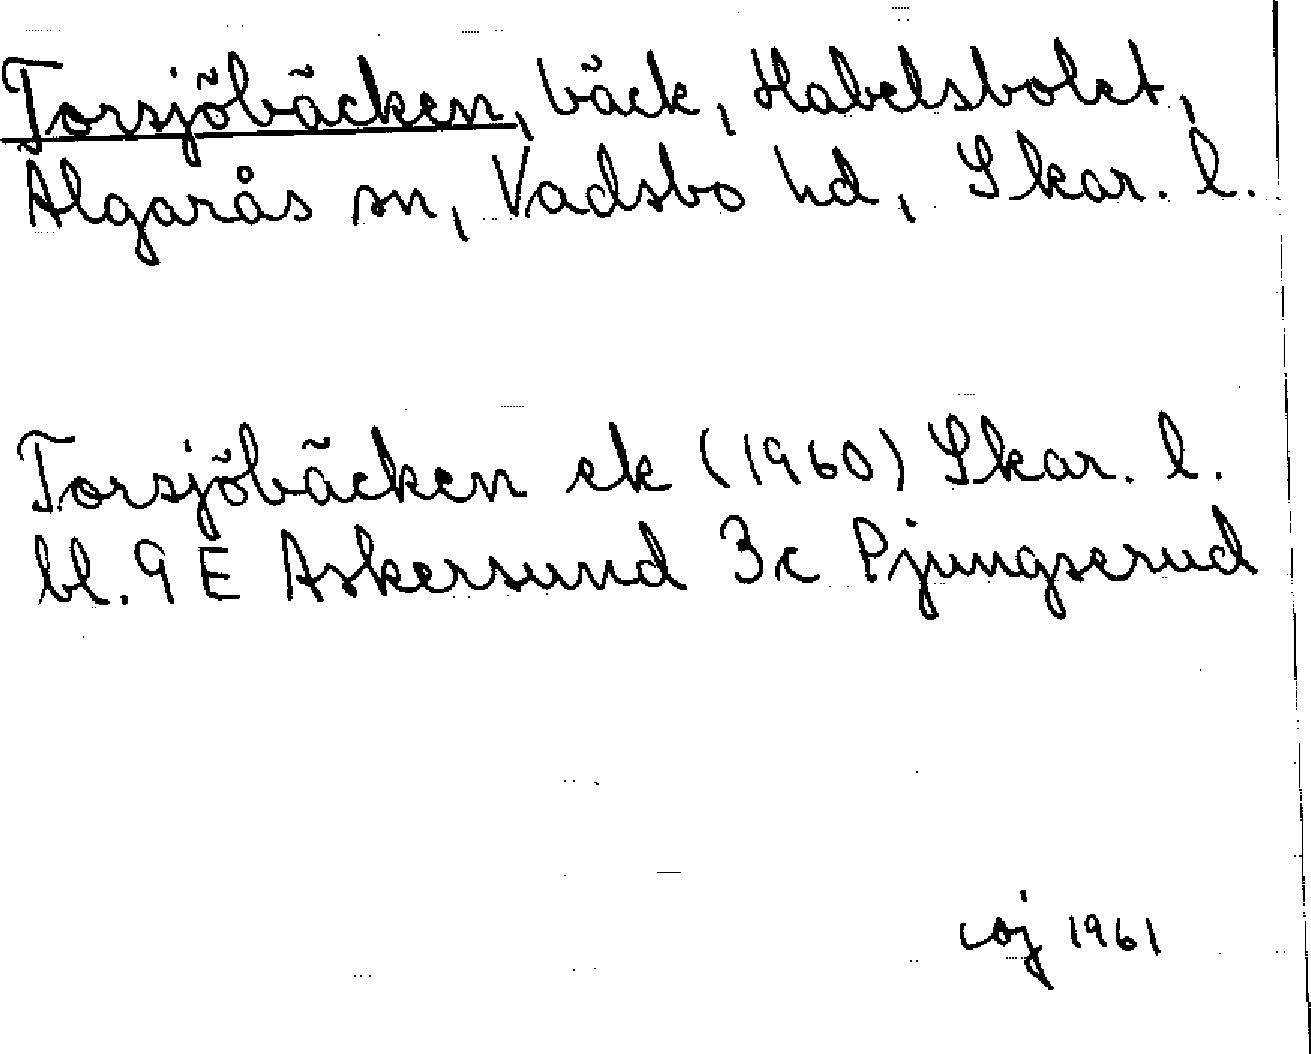 Torsjöbäcken, bäck, Habelsbolet,
Algarås sn, Vadsbo hd, Skar. l.
Torsjöbäcken ek (1960) Skar. l.
bl. 9 E Askersund 3c Pjungserud
coj 1961